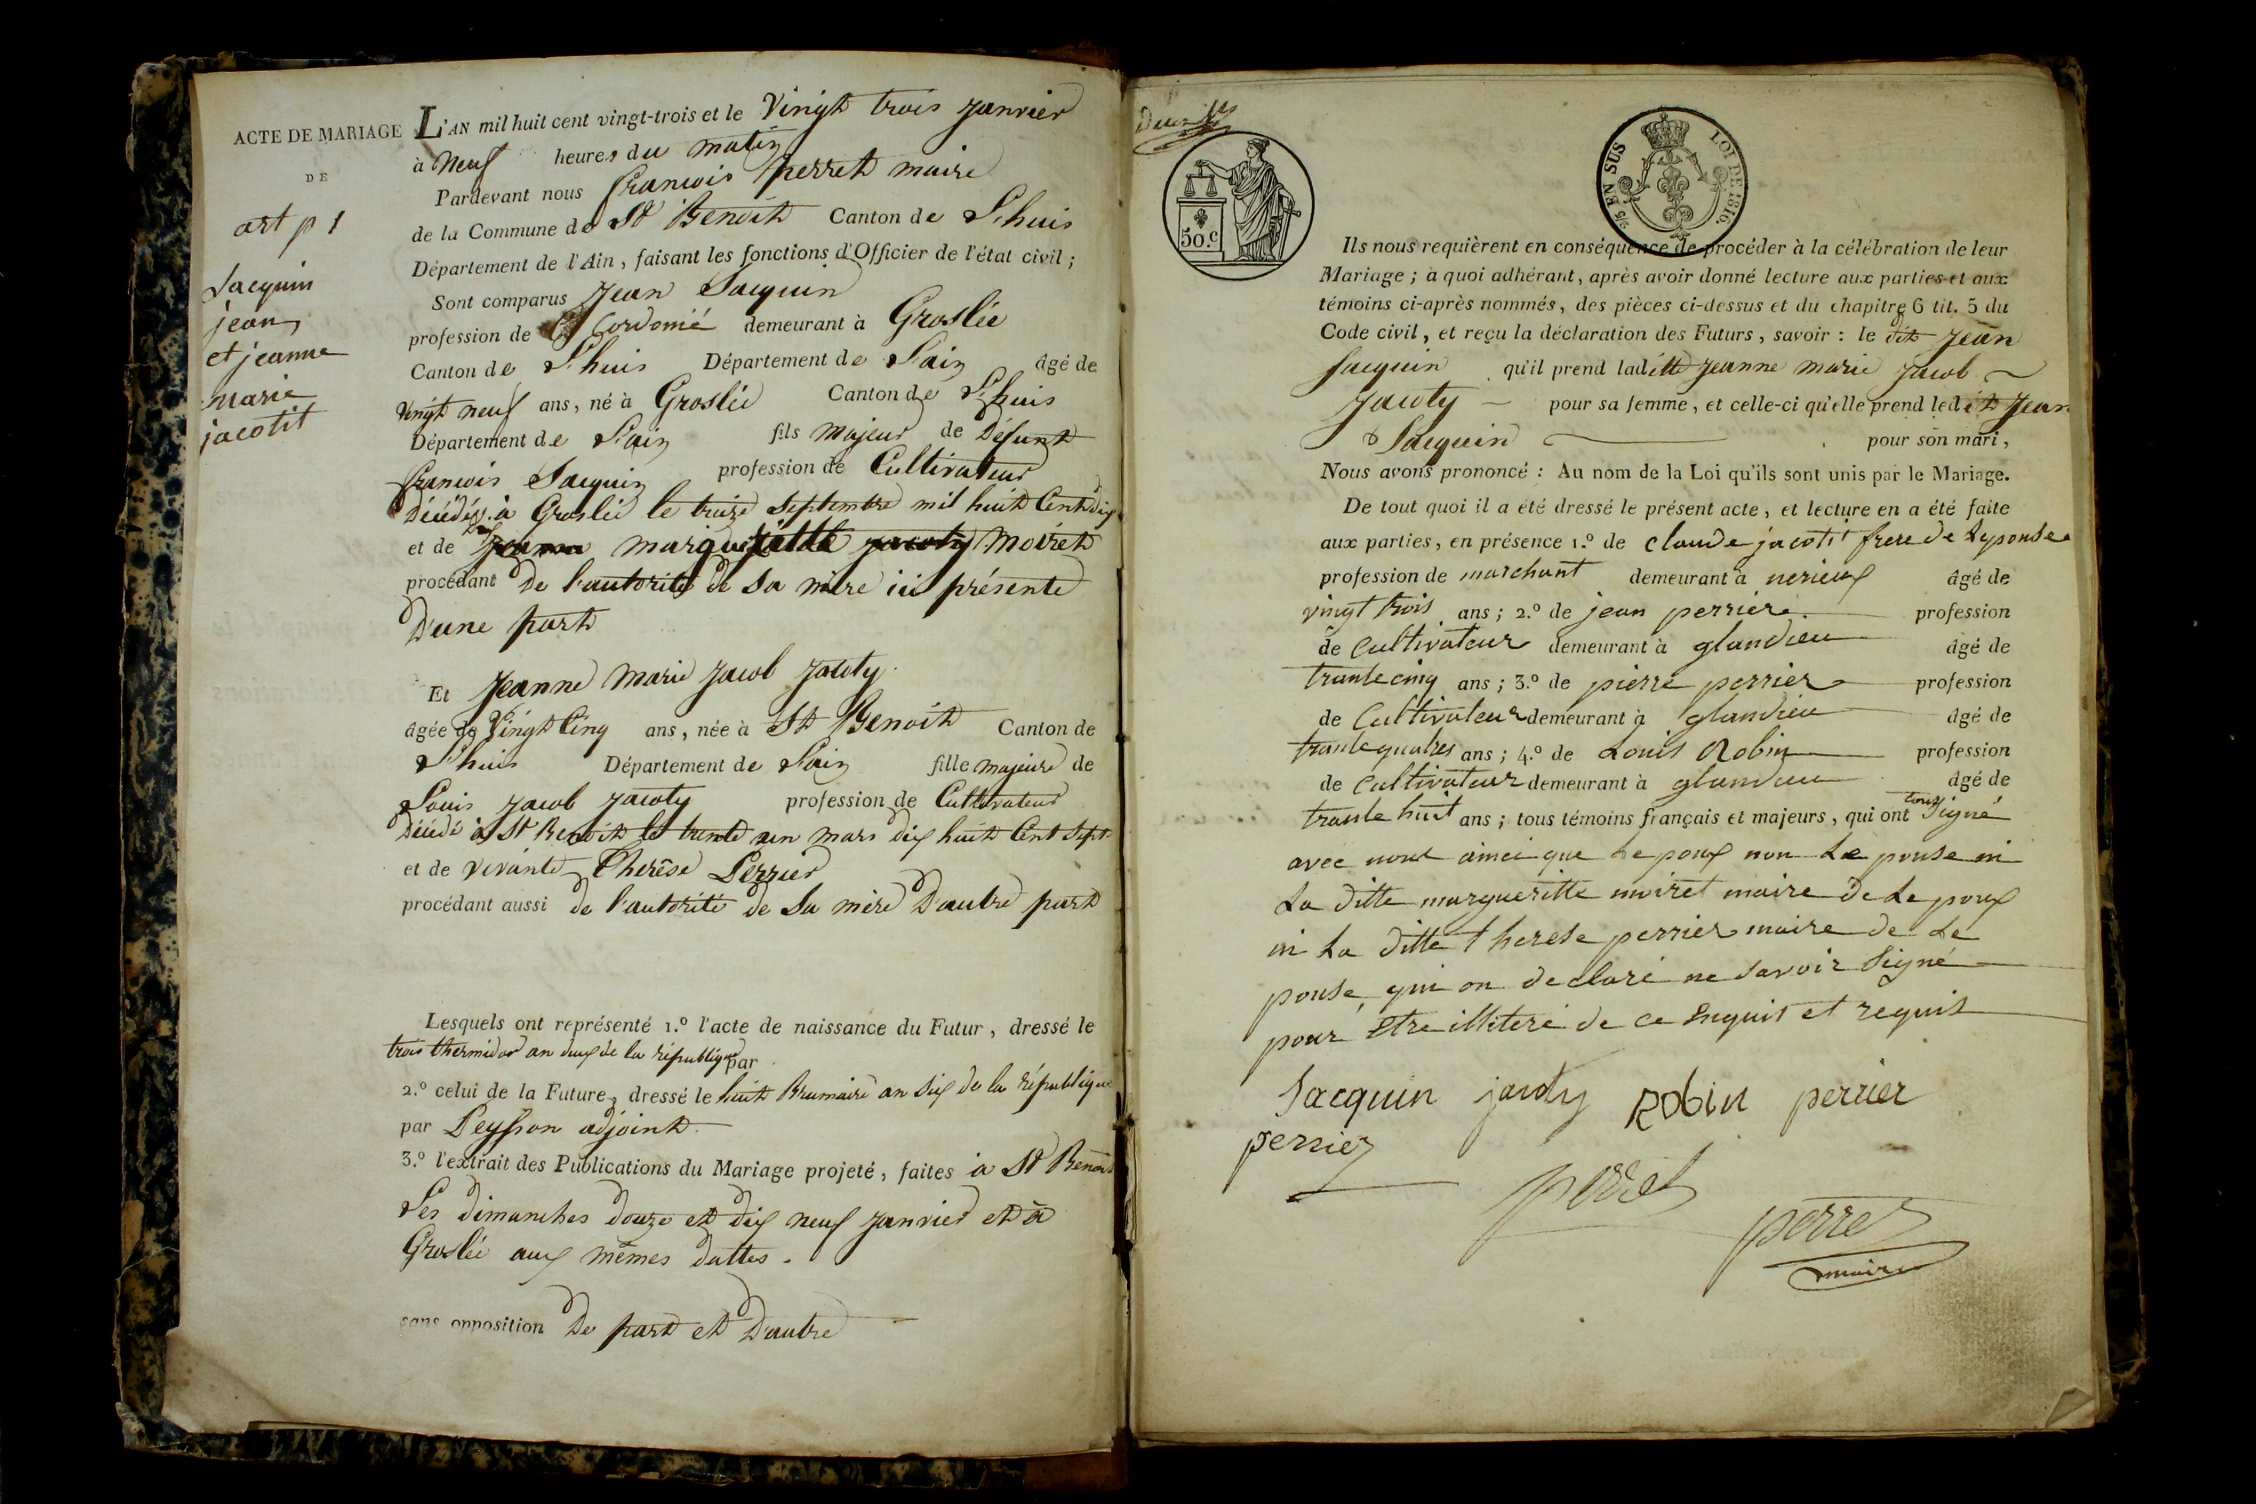 ACTE DE MARIAGE
DE
art p 1
Jacquin
jean
et jeanne
marie
jacotit
L'AN mil huit cent vingt-trois et le Vingt trois janvier
à Neuf heures du matin
Pardevant nous francois perret maire
de la Commune de St Benoit Canton de Lhuis
Département de l'Ain, faisant les fonctions d'Officier de l'état civil;
Sont comparus Jean Jacquin
profession de Cordonié demeurant à Groslée
Canton de Lhuis Département de Lain âgé de
vingt neuf ans, né à Groslée Canton de Lhuis
Département de Lain fils majeur de Défunt
francois Jacquin profession de Cultivateur
Décédé à Groslée le treize septembre mil huit Cent dix
et de marguerite Moiret
procédant De l'autorité de sa mère ici présente
D'une part
Et Jeanne Marie Jacob Jacoty
âgée de Vingt Cinq ans, née à St Benoit Canton de
Lhuis Département de Lain fille majeure de
Louis Jacob Jacoty profession de Cultivateur
Décédé à St Benoit le trente un mars dix huit Cent sept
et de vivante Therèse Perrier
procédant aussi de l'autorité de sa mère D'autre part
Lesquels ont représenté 1.º l'acte de naissance du Futur, dressé le
trois thermidor an deux de la république par
2.º celui de la Future, dressé le huit Brumaire an six de la république
par Peysson adjoint
3.º l'extrait des Publications du Mariage projeté, faites à St Benoit
Les dimanches douze et dix neuf janvier et à
Groslée aux mêmes dattes.
sans opposition De part et D'autre
50.c
2/5 EN SUS LOI DE 1816.
Ils nous requièrent en conséquence de procéder à la célébration de leur
Mariage; à quoi adhérant, après avoir donné lecture aux parties et aux
témoins ci-après nommés, des pièces ci-dessus et du chapitre 6 tit. 5 du
Code civil, et reçu la déclaration des Futurs, savoir: le dit Jean
Jacquin qu'il prend laditte Jeanne marie Jacob
Jacoty pour sa femme, et celle-ci qu'elle prend ledit Jean
Jacquin pour son mari,
Nous avons prononcé: Au nom de la Loi qu'ils sont unis par le Mariage.
De tout quoi il a été dressé le présent acte, et lecture en a été faite
aux parties, en présence 1.º de claude jacotit frere de Leponse
profession de marchant demeurant à nerieux âgé de
vingt trois ans; 2.º de jean perrier profession
de Cultivateur demeurant à glandieu âgé de
trante cinq ans; 3.º de pierre perrier profession
de Cultivateur demeurant à glandieu âgé de
trante quatres ans; 4.º de Louis Robin profession
de Cultivateur demeurant à glandieu âgé de
trante huit ans; tous témoins français et majeurs, qui ont tous signé
avec nous ainci que Le poux non Le pouse ni
La ditte margueritte moiret maire de Le poux
ni La ditte therese perrier maire de Le
pouse, qui on declaré ne savoir signé
pour Etre illiteré de ce Enquis et requis
Jacquin jacoty Robin perrier
perrier
perret
perret
maire